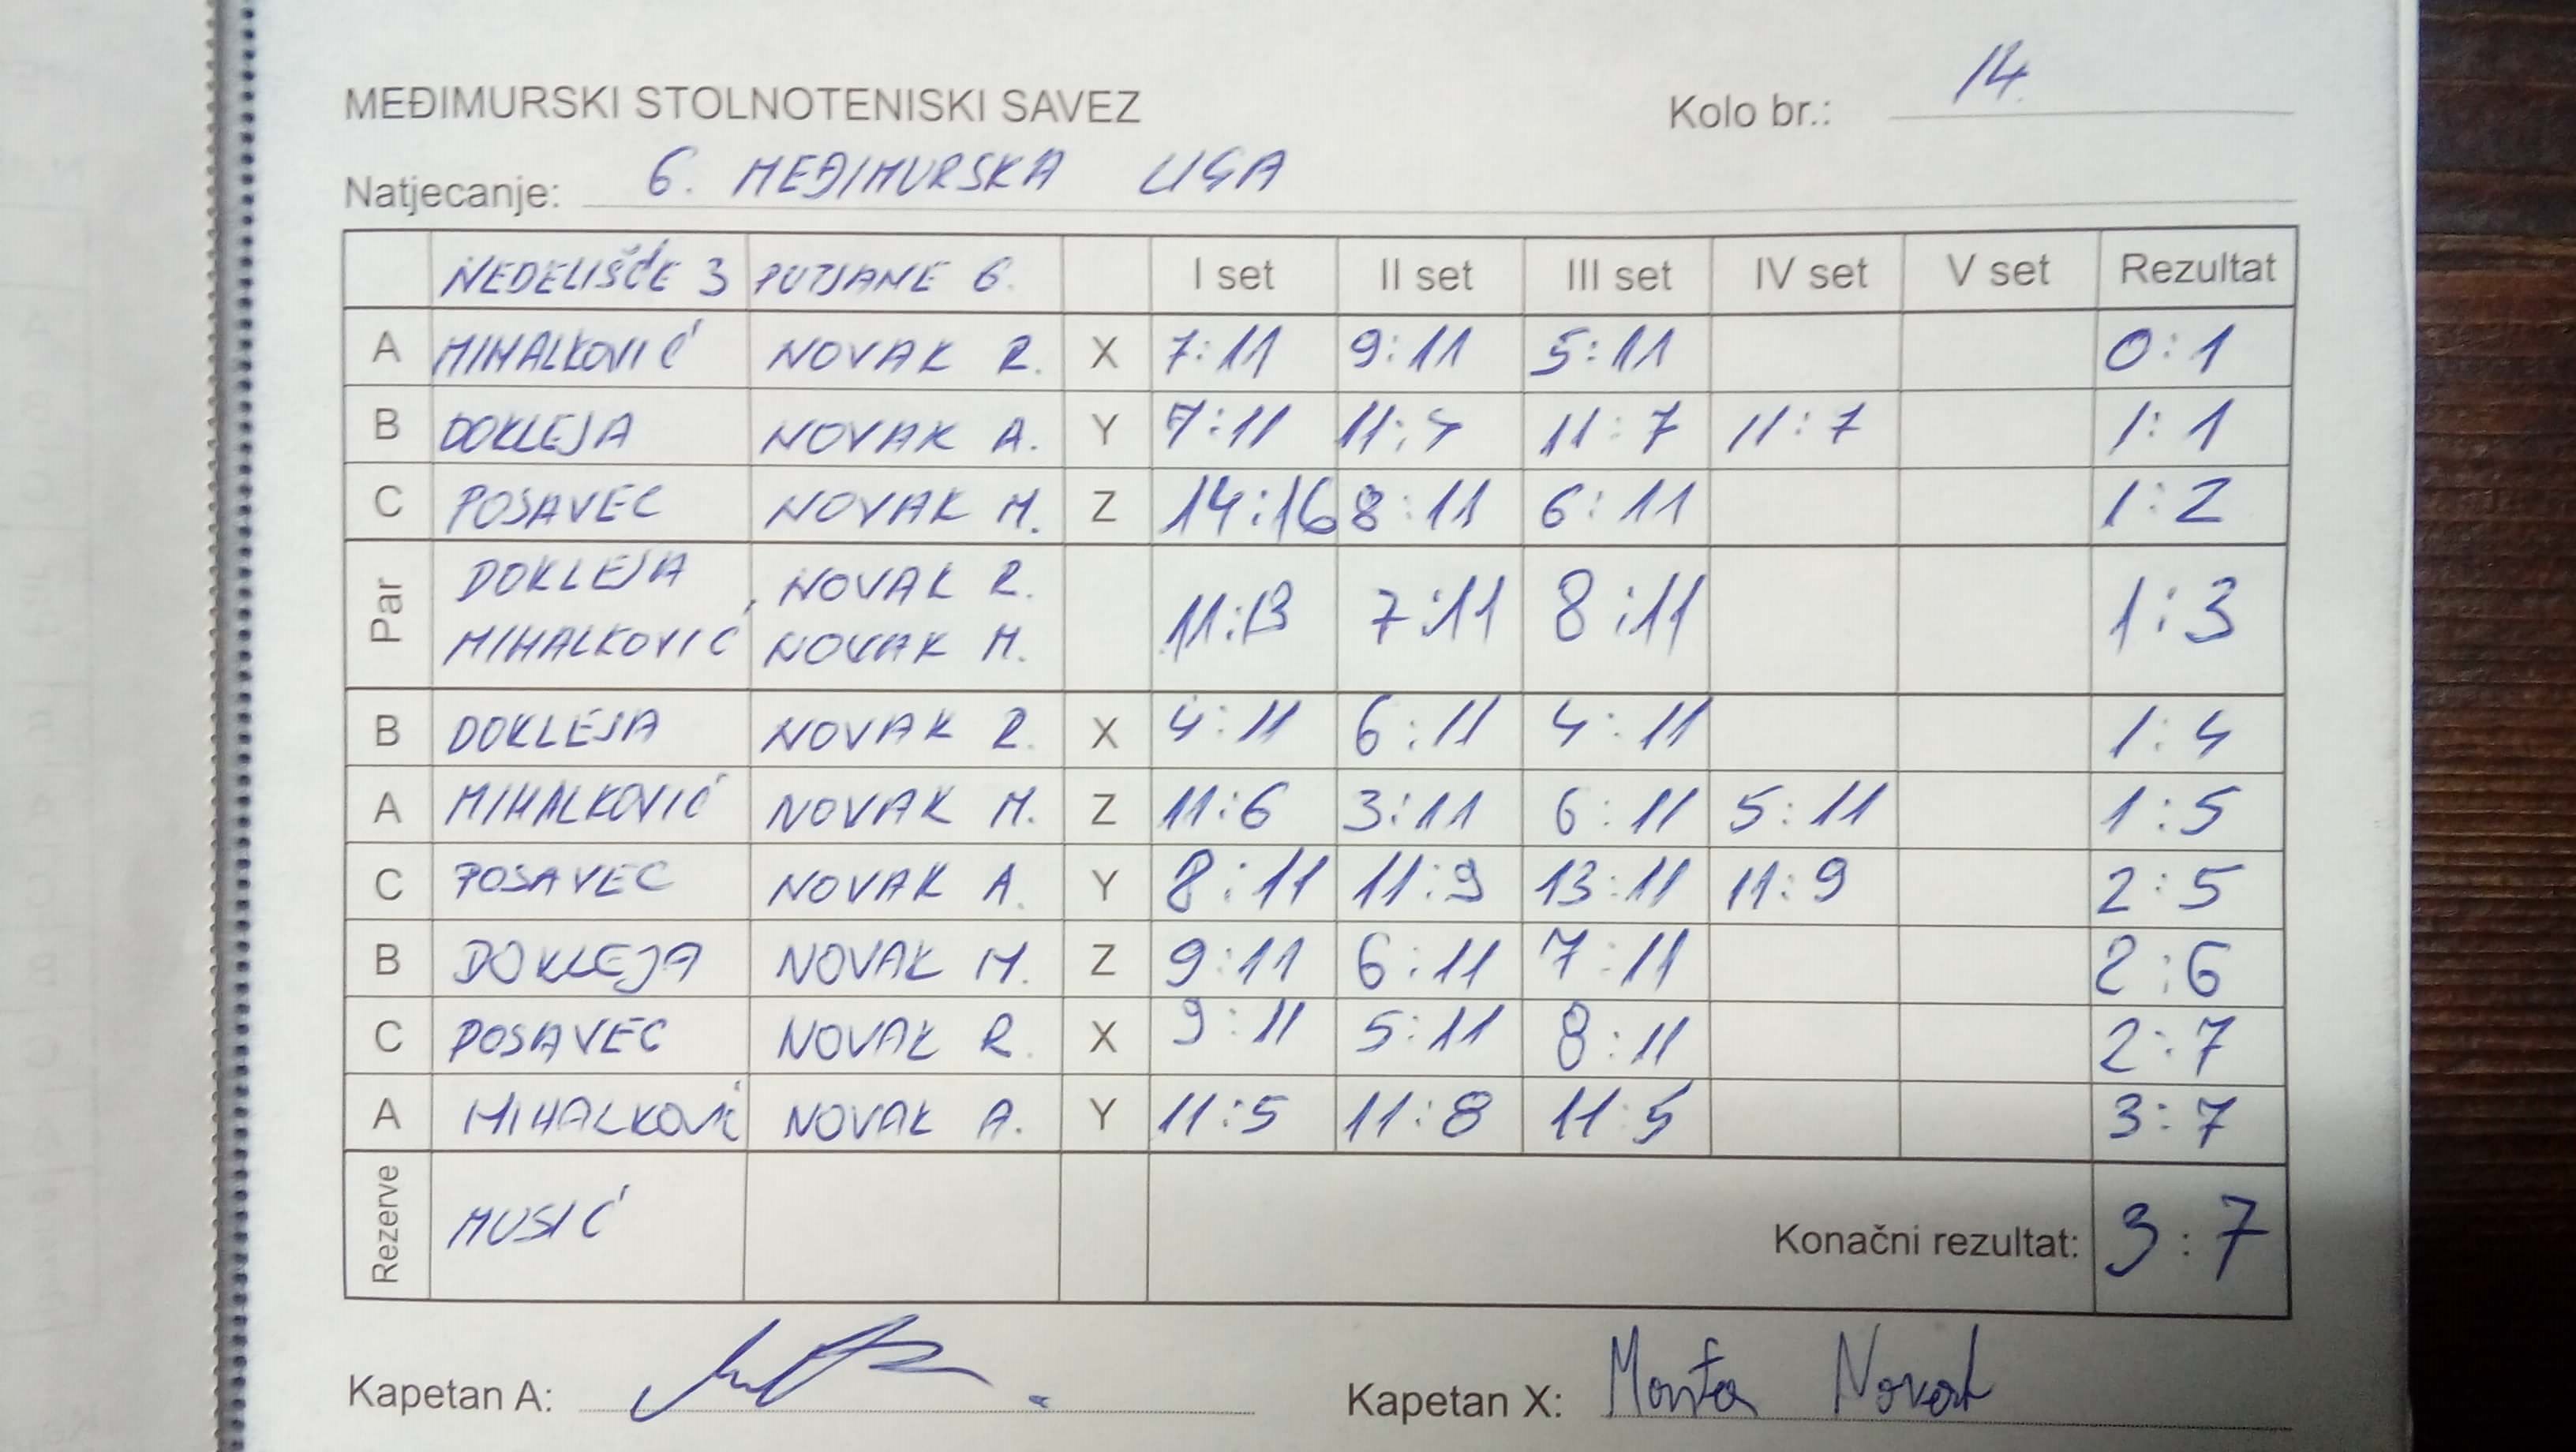 MEĐIMURSKI STOLNOTENISKI SAVEZ Kolo br.: 14.
Natjecanje: 6. MEĐIMURSKA LIGA
NEDELIŠĆE 3 PUTJANE 6. I set II set III set IV set V set Rezultat
A MIHALKOVIĆ NOVAK R. X 7:11 9:11 5:11 0:1
B DOKLEJA NOVAK A. Y 7:11 11: 11:7 11:7 1:1
C POSAVEC NOVAK M. Z 14:16 8:11 6:11 1:2
Par DOKLEJA NOVAK R. 11:13 7:11 8:11 1:3
MIHALKOVIĆ NOVAK M.
B DOKLEJA NOVAK R. X 4:11 6:11 4:11 1:4
A MIHALKOVIĆ NOVAK M. Z 11:6 3:11 6:11 5:11 1:5
C POSAVEC NOVAK A. Y 8:11 11:9 13:11 11:9 2:5
B DOKLEJA NOVAK M. Z 9:11 6:11 7:11 2:6
C POSAVEC NOVAK R. X 9:11 5:11 8:11 2:7
A MIHALKOVIĆ NOVAK A. Y 11:5 11:8 11:5 3:7
Rezerve MUSIĆ Konačni rezultat: 3:7
Kapetan A: Kapetan X: Novak